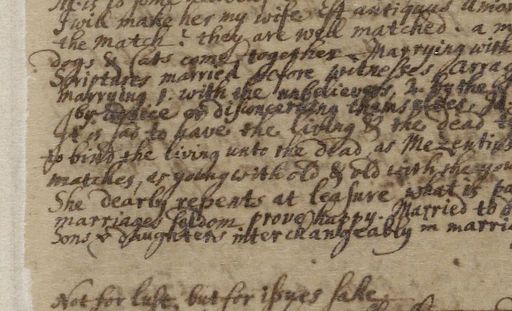 I will make her my wife. Est antiquus amor
the match? they are well matched. a m
dogs & Cats come together. Marrying with
Scriptures married before witnesses.
marrying 1. with the unbelievers, 2. by the
or disconcerting themselves.
It is sad to have the living & the dead
to bind the living unto the dead as Mezentius
matches, as young with old & old with the you
She dearly repents at leasure what is
marriages seldom prove happy. Married to
Sons & daughters interchangeably in marria
Not for lust, but for issues sake